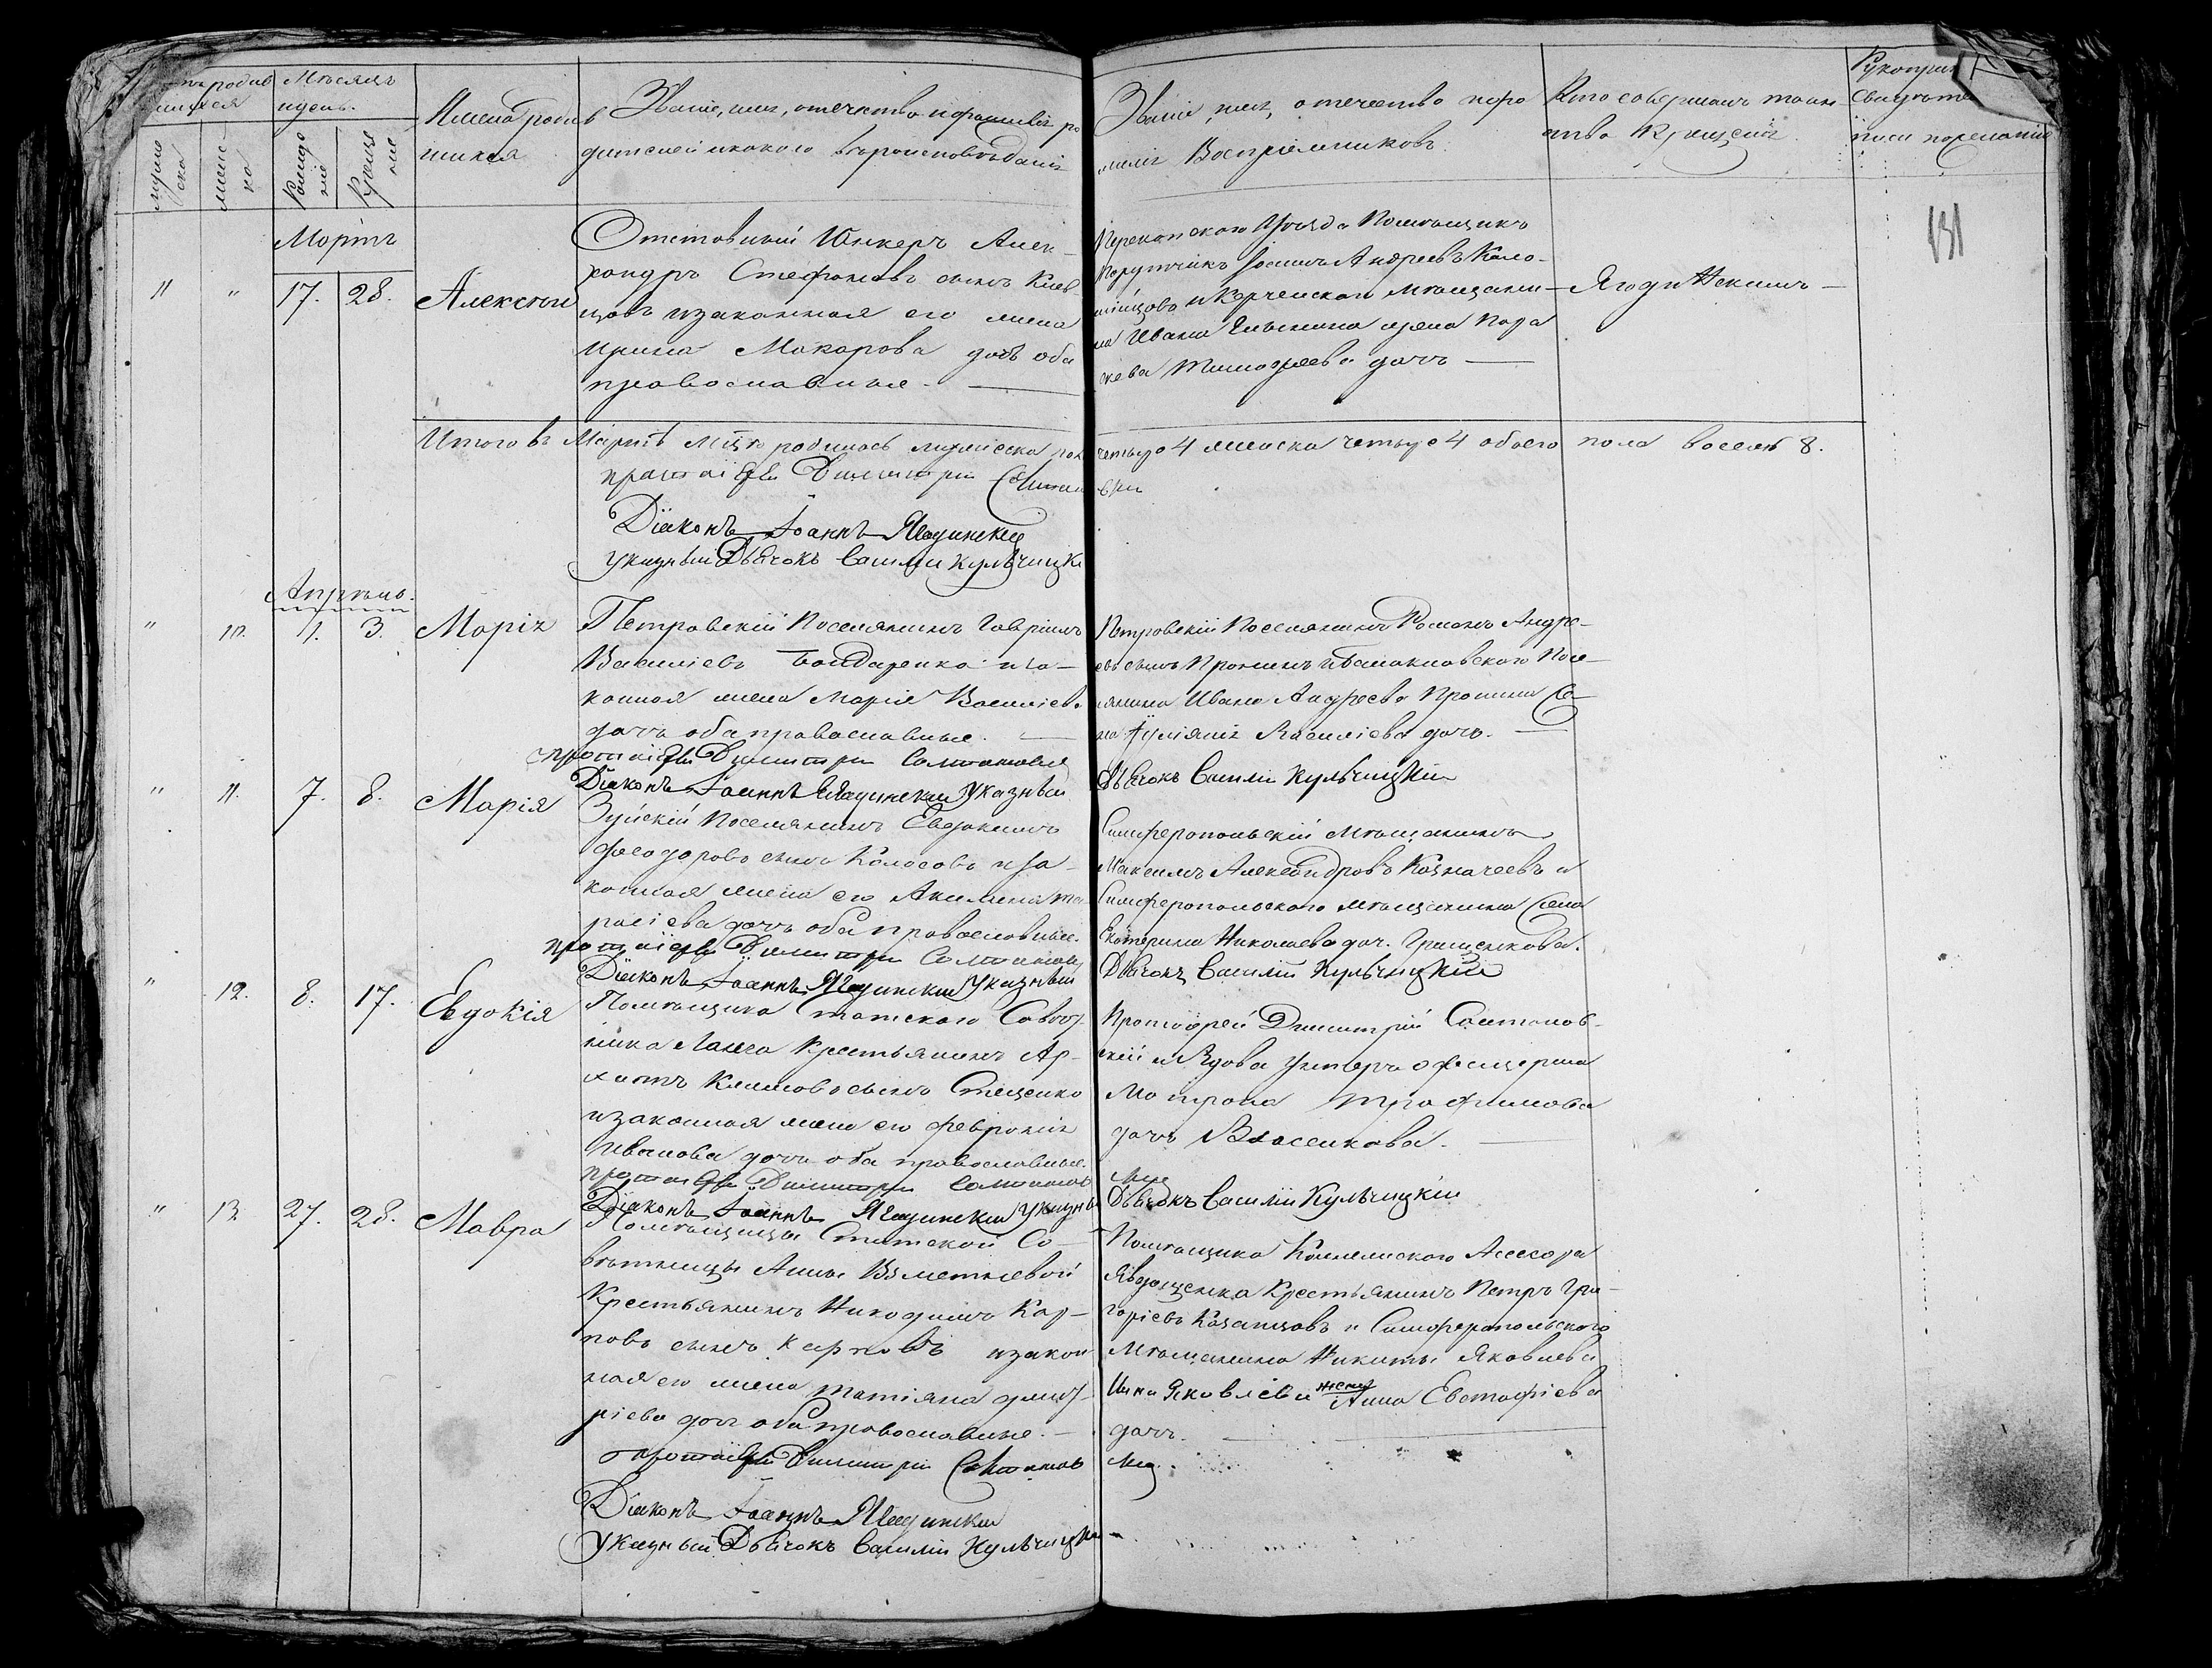 Мѣсяцъ
и день.
Имена роди
шихся
Званіе, имя, отечество и фамилія ро
дителей и какого вѣроисповѣданія
Званіе, имя, отечество и фа
милія Воспріемниковъ.
Кто совершалъ таин
ство Крещенія
Рукопри
свидѣте
писи по желанію
муже
ска
женс
ка
Рожде
ніе
Креще
ніе
131
Мартъ
11 " 17. 28. Алексѣй
Отставный Юнкеръ Алек-
сандръ Стефановъ сынъ
и законная его жена
Ирина Макарова дочь оба
православные.
Перекопскаго Уѣзда Помѣщикъ
Порутчикъ Іосифъ Андреевъ Коло-
мійцовъ и Керченскаго мѣщани-
на Ивана жена Пара
скева Тимофеева дочь
Итого въ Мартѣ м̃цѣ родилось мужеска пол
четыре 4 женска четыре 4 обоего пола восемь 8.
протоіерей Димитрій Солтан
вскій
Діаконъ Іоаннъ Ягодинскій
указный Дьячокъ Василій Кульчицкі
Апрѣль.
" 10. 1. 3. Марія
Петровскій Поселянинъ Гавріилъ
Василіевъ Бондаренко и за-
конная жена Марія Василіева
дочь оба православные.
Петровскій Поселянинъ Романъ Андре-
евъ сынъ Пронинъ и Балаклавскаго Посе-
лянина Ивана Андреева Пронина Же-
на Іуліянія Василіева дочь.
протоіерей Димитрій Солтановскій
Діаконъ Іоаннъ Ягодинскій Указный
Дьячокъ Василій Кульчицкій
" 11. 7. 8. Марія
Зуйскій Поселянинъ Евдокимъ
Феодоровъ сынъ Колосовъ и за-
конная жена его Акилина Та
расіева дочь оба православные.
Симферопольскій Мѣщанинъ
Максимъ Александровъ Казначеевъ и
Симферопольскаго мѣщанина Жена
Екатерина Николаева доч. Грищенкова.
протоіерей Димитрій Солтановс
Діаконъ Іоаннъ Ягодинскій Указный
Дьячокъ Василій Кульчицкій
" 12. 8. 17. Евдокія
Помѣщика Статскаго Совѣт-
ника Ланга Крестьянинъ Ар-
хипъ Климовъ сынъ Стеценко
и законная жена его Февронія
Иванова дочь оба православные.
Протоіерей Димитрій Солтанов-
скій и Вдова Унтеръ офицерша
Матрона Трофимова
дочь Власенкова.
протоіерей Димитрій Солтанов
скій
Діаконъ Іоаннъ Ягодинскій Указны
Дьячокъ Василій Кульчицкій
" 13. 27. 28. Мавра
Помѣщицы Статской Со-
вѣтницы Анны Взметневой
Крестьянинъ Никодимъ Кар-
повъ сынъ Карповъ и закон
ная его жена Татіяна Дмит-
ріева дочь оба православные.
Помѣщика Коллежскаго Асесора
Явдощенка Крестьянинъ Петръ Гри-
горіевъ Казанцовъ и Симферопольскаго
Мѣщанина Никиты Яковлева
Яковлева жена Анна Евстафіева
дочь.
протоіерей Димитрій Солтанов
скій
Діаконъ Іоаннъ Ягодинскій
Указный Дьячокъ Василій Кульчицкій